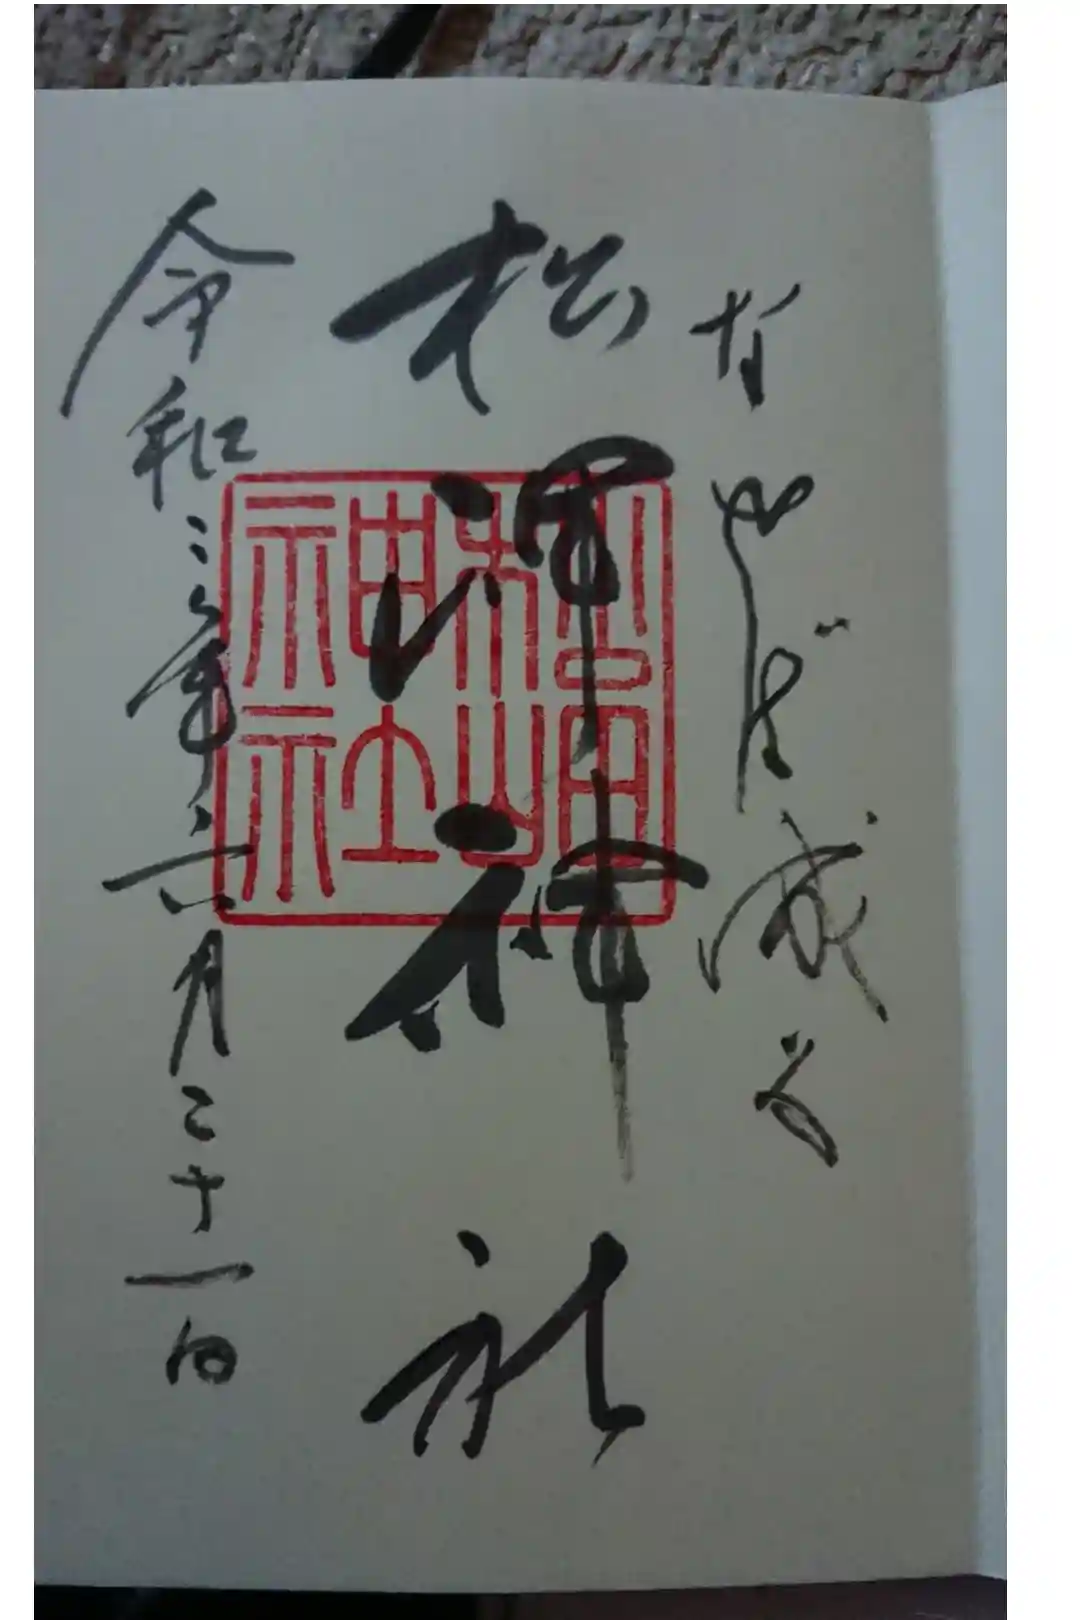 なせば成る
松岬神社
令和三年六月二十一日
松岬神社